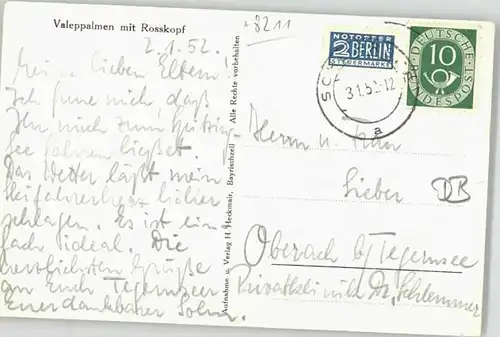 Valeppalmen mit Rosskopf
*8211
2.1.52.
Meine lieben Eltern!
Ich freue mich, daß
Ihr mich zum Spitzing-
see fahren ließet.
Das Wetter läßt mein
Skifahrerherz höher
schlagen. Es ist ein-
fach ideal. Die
herzlichsten Grüße
an Euch Tegernseer
Euer dankbarer Sohn.
Aufnahme u. Verlag H. Heckmair, Bayrischzell
Alle Rechte vorbehalten
NOTOPFER
2 BERLIN
STEUERMARKE
DEUTSCHE
10
BUNDESPOST
3.1.52.-12
a
Herrn u. Frau
Lieber
DB
Oberach b/Tegernsee
Privatklinik Dr. Schlemmer